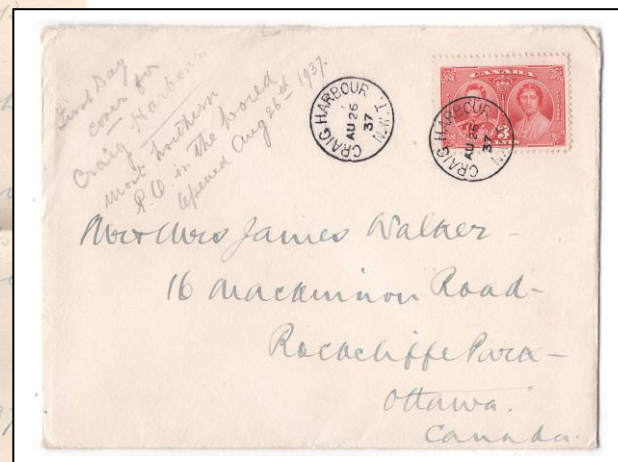 First Day
cover for
Craig Harbour
most northern
P.O. in the world
opened Aug 26th 1937.
CRAIG HARBOUR N.W.T.
AU 26
37
CANADA
3
CRAIG HARBOUR N.W.T.
AU 26
37
Mr & Mrs James Walker -
16 Mackinnon Road -
Rockcliffe Park -
Ottawa.
Canada.